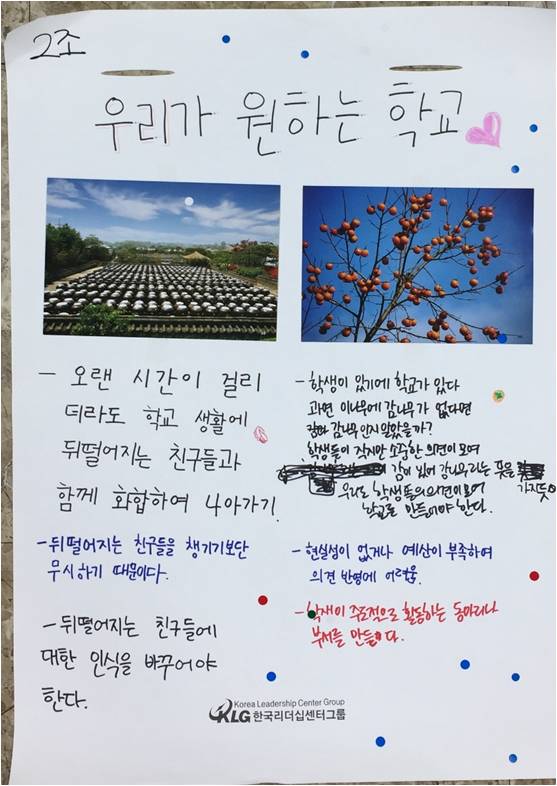 2조
우리가 원하는 학교
- 오랜 시간이 걸리
더라도 학교 생활에
뒤떨어지는 친구들과
함께 화합하여 나아가기.
- 뒤떨어지는 친구들을 챙기기보단
무시하기 때문이다.
- 뒤떨어지는 친구들에
대한 인식을 바꾸어야
한다.
- 학생이 있기에 학교가 있다
과연 이나무에 감나무가 없다면
감나무인지 알았을까?
학생들이 작지만 소중한 의견이 모여
감이 있어 감나무라는 뜻을
가지듯이
우리도 학생들의 의견이 모여
학교를 만들어야 한다.
- 현실성이 없거나 예산이 부족하여
의견 반영에 어려움.
- 학생이 주도적으로 활동하는 동아리나
부서를 만들이다.
Korea Leadership Center Group
KLG 한국리더십센터그룹